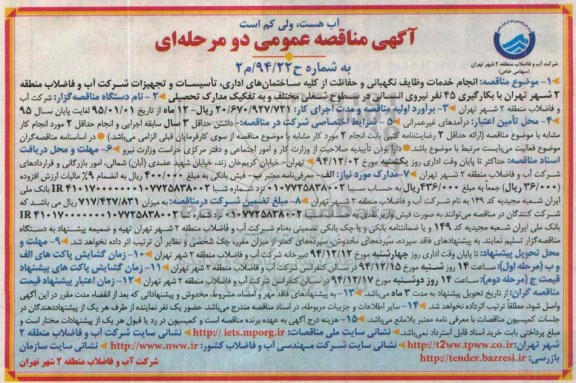 آب هست، ولی کم است
آگهی مناقصه عمومی دو مرحله‌ای
به شماره ح۹۴/۲۲/م۲
شرکت آب و فاضلاب منطقه ۲ شهر تهران
(سهامی خاص)
۱- موضوع مناقصه: انجام خدمات وظایف نگهبانی و حفاظت از کلیه ساختمان‌های اداری، تأسیسات و تجهیزات شرکت آب و فاضلاب منطقه
۲ شهر تهران با بکارگیری ۴۵ نفر نیروی انسانی در سطوح شغلی مختلف و به تفکیک مدارک تحصیلی ۲- نام دستگاه مناقصه‌گزار: شرکت آب
و فاضلاب منطقه ۲ شهر تهران ۳- برآورد اولیه مناقصه و مدت اجرای کار: ۲۰/۶۷۰/۹۲۷/۷۲۱ ریال - ۱۲ ماه از تاریخ ۹۵/۰۱/۰۱ لغایت پایان سال ۹۵
۴- محل تأمین اعتبار: درآمدهای غیرعمرانی ۵- شرایط اختصاصی شرکت در مناقصه: داشتن حداقل ۳ سال سابقه اجرایی و انجام حداقل ۲ مورد انجام کار
مشابه با موضوع مناقصه (ارائه حداقل ۲ رضایت‌نامه کاری بابت انجام ۲ مورد کار مشابه با موضوع مناقصه از سوی کارفرمایان قبلی الزامی می‌باشد.) در اساسنامه مناقصه‌گران
موضوع فعالیت می‌بایست مرتبط با موضوع باشد دارا بودن تأییدیه صلاحیت از وزارت کار و امور اجتماعی و دفتر مرکزی حراست وزارت نیرو ۶- مهلت و محل دریافت
اسناد مناقصه: حداکثر تا پایان وقت اداری روز یکشنبه مورخ ۹۴/۱۲/۰۲ شرکت آب و فاضلاب منطقه ۲ شهر تهران - تهران، خیابان کریم‌خان زند، خیابان شهید عضدی (آبان) شمالی، امور بازرگانی و قراردادهای
شرکت آب و فاضلاب منطقه ۲ شهر تهران ۷- مدارک مورد نیاز: الف - معرفی‌نامه معتبر ب - فیش بانکی به مبلغ ۴۰۰/۰۰۰ ریال به انضمام ۹٪ مالیات ارزش افزوده
(۳۶/۰۰۰ ریال) جمعاً به مبلغ ۴۳۶/۰۰۰ ریال به حساب سبا ۰۱۰۷۷۲۵۸۳۸۰۰۲ نزد بانک ملی
ایران شعبه مجیدیه کد ۱۴۹ به نام شرکت آب و فاضلاب منطقه ۲ شهر تهران ۸- مبلغ تضمین شرکت در مناقصه: به میزان ۷۱۷/۴۲۷/۸۳۱ ریال می باشد که
شرکت کنندگان در مناقصه می‌توانند به صورت فیش
بانک ملی ایران شعبه مجیدیه کد ۱۴۹ و یا ضمانتنامه بانکی و یا چک بانکی تضمینی به‌نام شرکت آب و فاضلاب منطقه ۲ شهر تهران تهیه و ضمیمه پیشنهاد به دستگاه
مناقصه‌گزار تسلیم نمایند. به پیشنهادهای فاقد سپرده، سپرده‌های مخدوش و سپرده‌های کمتر از میزان مقرر، چک شخصی و نظایر آن ترتیب اثر داده نخواهد شد. ۹- مهلت و
محل تحویل پیشنهاد: تا پایان وقت اداری روز چهارشنبه مورخ ۹۴/۱۲/۱۲ دبیرخانه شرکت آب و فاضلاب منطقه ۲ شهر تهران ۱۰- زمان گشایش پاکت های الف
و ب (مرحله اول): ساعت ۱۴ روز شنبه مورخ ۹۴/۱۲/۱۵ در سالن کنفرانس شرکت آب و فاضلاب منطقه ۲ شهر تهران ۱۱- زمان گشایش پاکت های پیشنهاد
قیمت ج (مرحله دوم): ساعت ۱۴ روز دوشنبه مورخ ۹۴/۱۲/۱۷ در سالن کنفرانس شرکت آب و فاضلاب منطقه ۲ شهر تهران ۱۲- زمان اعتبار پیشنهاد قیمت
مناقصه گران: از تاریخ تحویل پیشنهاد به مدت ۳ ماه می باشد. ۱۳- به پیشنهادهای فاقد مهر و امضاء، مشروط، مخدوش و پیشنهاداتی که بعد از انقضاء مدت مقرر در این آگهی
واصل شود، مطلقاً ترتیب اثر داده نخواهد شد. ۱۴- سایر اطلاعات و جزئیات مربوطه، در اسناد مناقصه مندرج می‌باشد. حضور یک نفر نماینده از طرف هر یک از پیشنهاددهندگان در
جلسات کمیسیون مناقصات با معرفی نامه معتبر بلامانع می‌باشد. ۱۵- هزینه درج آگهی به عهده برنده مناقصه است و کمیسیون در رد یا قبول هر یک از پیشنهادات مختار است و
مبلغ پرداختی بابت خرید اسناد قابل استرداد نمی‌باشد. نشانی سایت ملی مناقصات: http://iets.mporg.ir نشانی سایت شرکت آب و فاضلاب منطقه ۲
شهر تهران: http://t2ww.tpww.co.ir نشانی سایت شرکت مهندسی آب و فاضلاب کشور: http://www.nww.ir نشانی سایت سازمان
بازرسی: http://tender.bazresi.ir
شرکت آب و فاضلاب منطقه ۲ شهر تهران